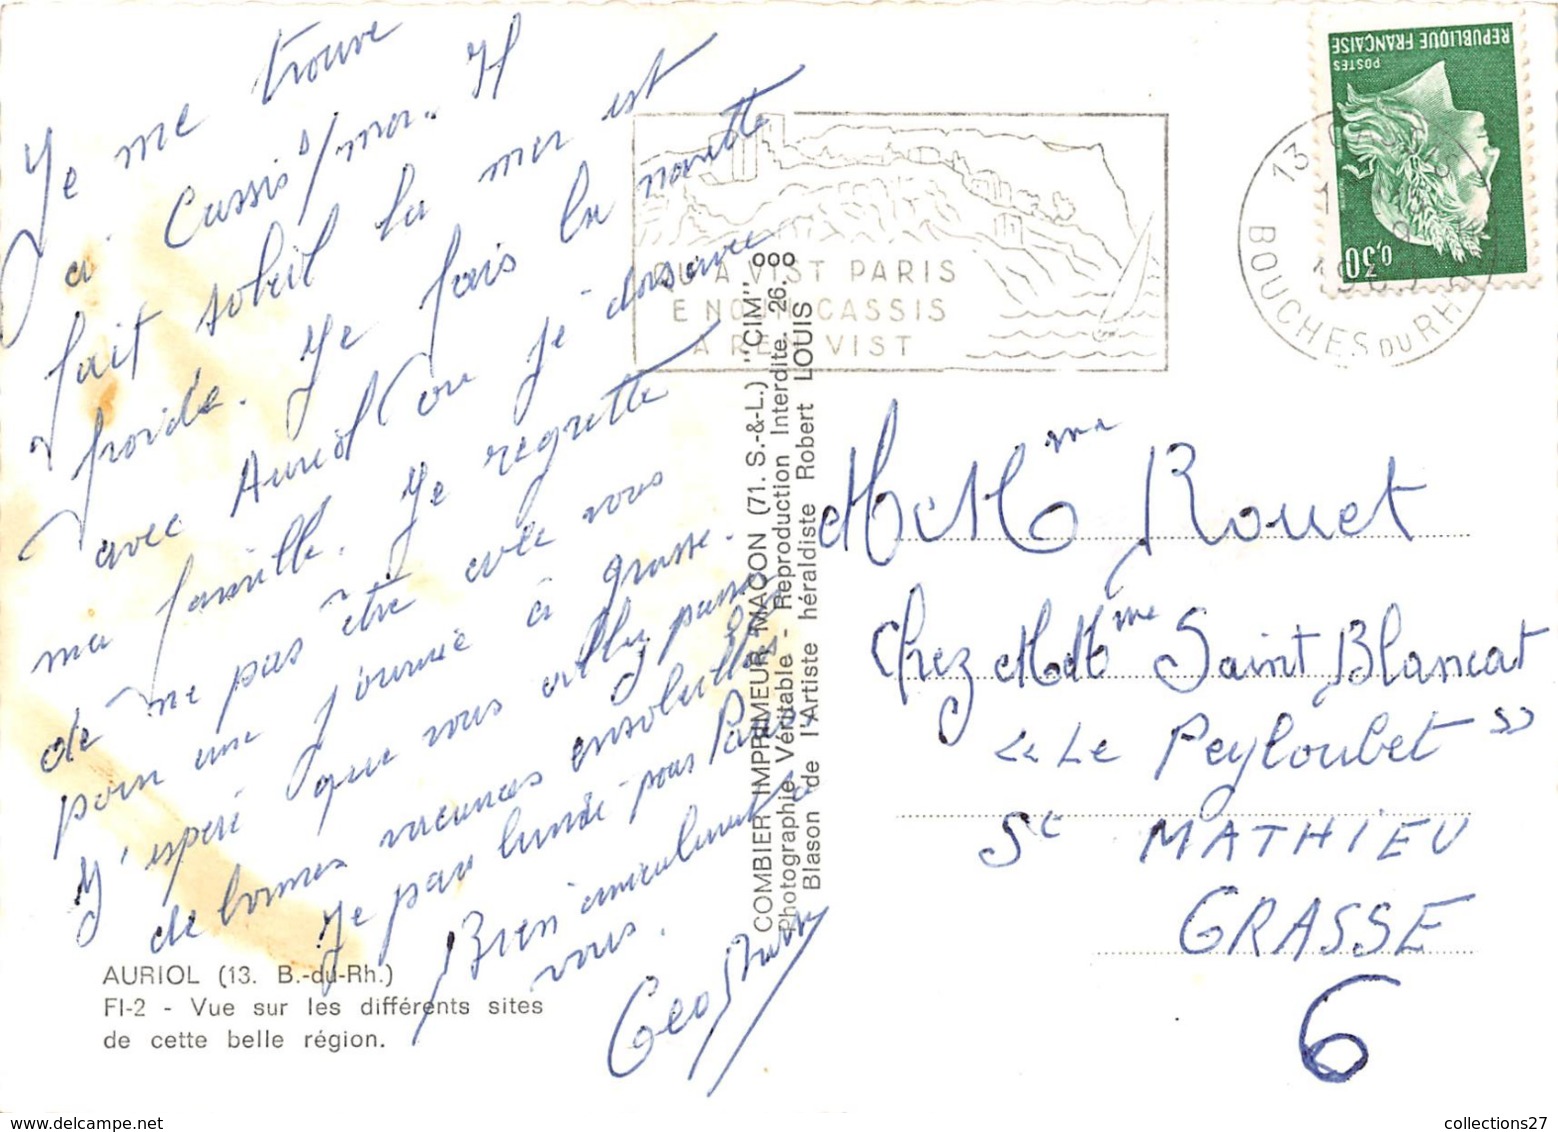 Je me trouve
a Cassis s/mer. Il
fait soleil la mer est
froide. Je fais la navette
avec Auriol ou je dessine
ma famille. Je regrette
de ne pas être avec vous
pour une journée à grasse.
J'espère que vous allez passer
de bonnes vacances ensoleillées
Je pars lundi pour Paris
Bien amicalement à
vous.
AURIOL (13. B.-du-Rh.)
FI-2 - Vue sur les différents sites
de cette belle région.
COMBIER IMPRIMEUR MACON (71. S.-&-L.) "CIM"
Photographie Véritable - Reproduction Interdite. 26. ooo
Blason de l'Artiste héraldiste Robert LOUIS
QU A VIST PARIS
E NOUN CASSIS
A REN VIST
13 CASSIS
BOUCHES DU RH
REPUBLIQUE FRANÇAISE
POSTES
0,30
M et Mme Rouet
Chez M et Mme Saint Blancat
"Le Peyloubet"
St MATHIEU
GRASSE
6
collections27